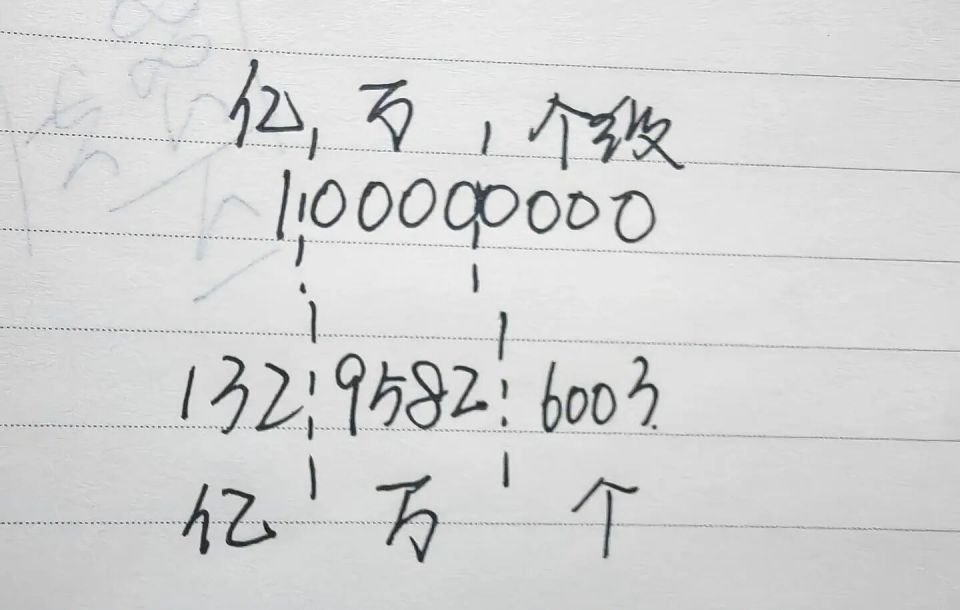 亿 万 个级
1 0000 0000
132 9582 6003
亿 万 个